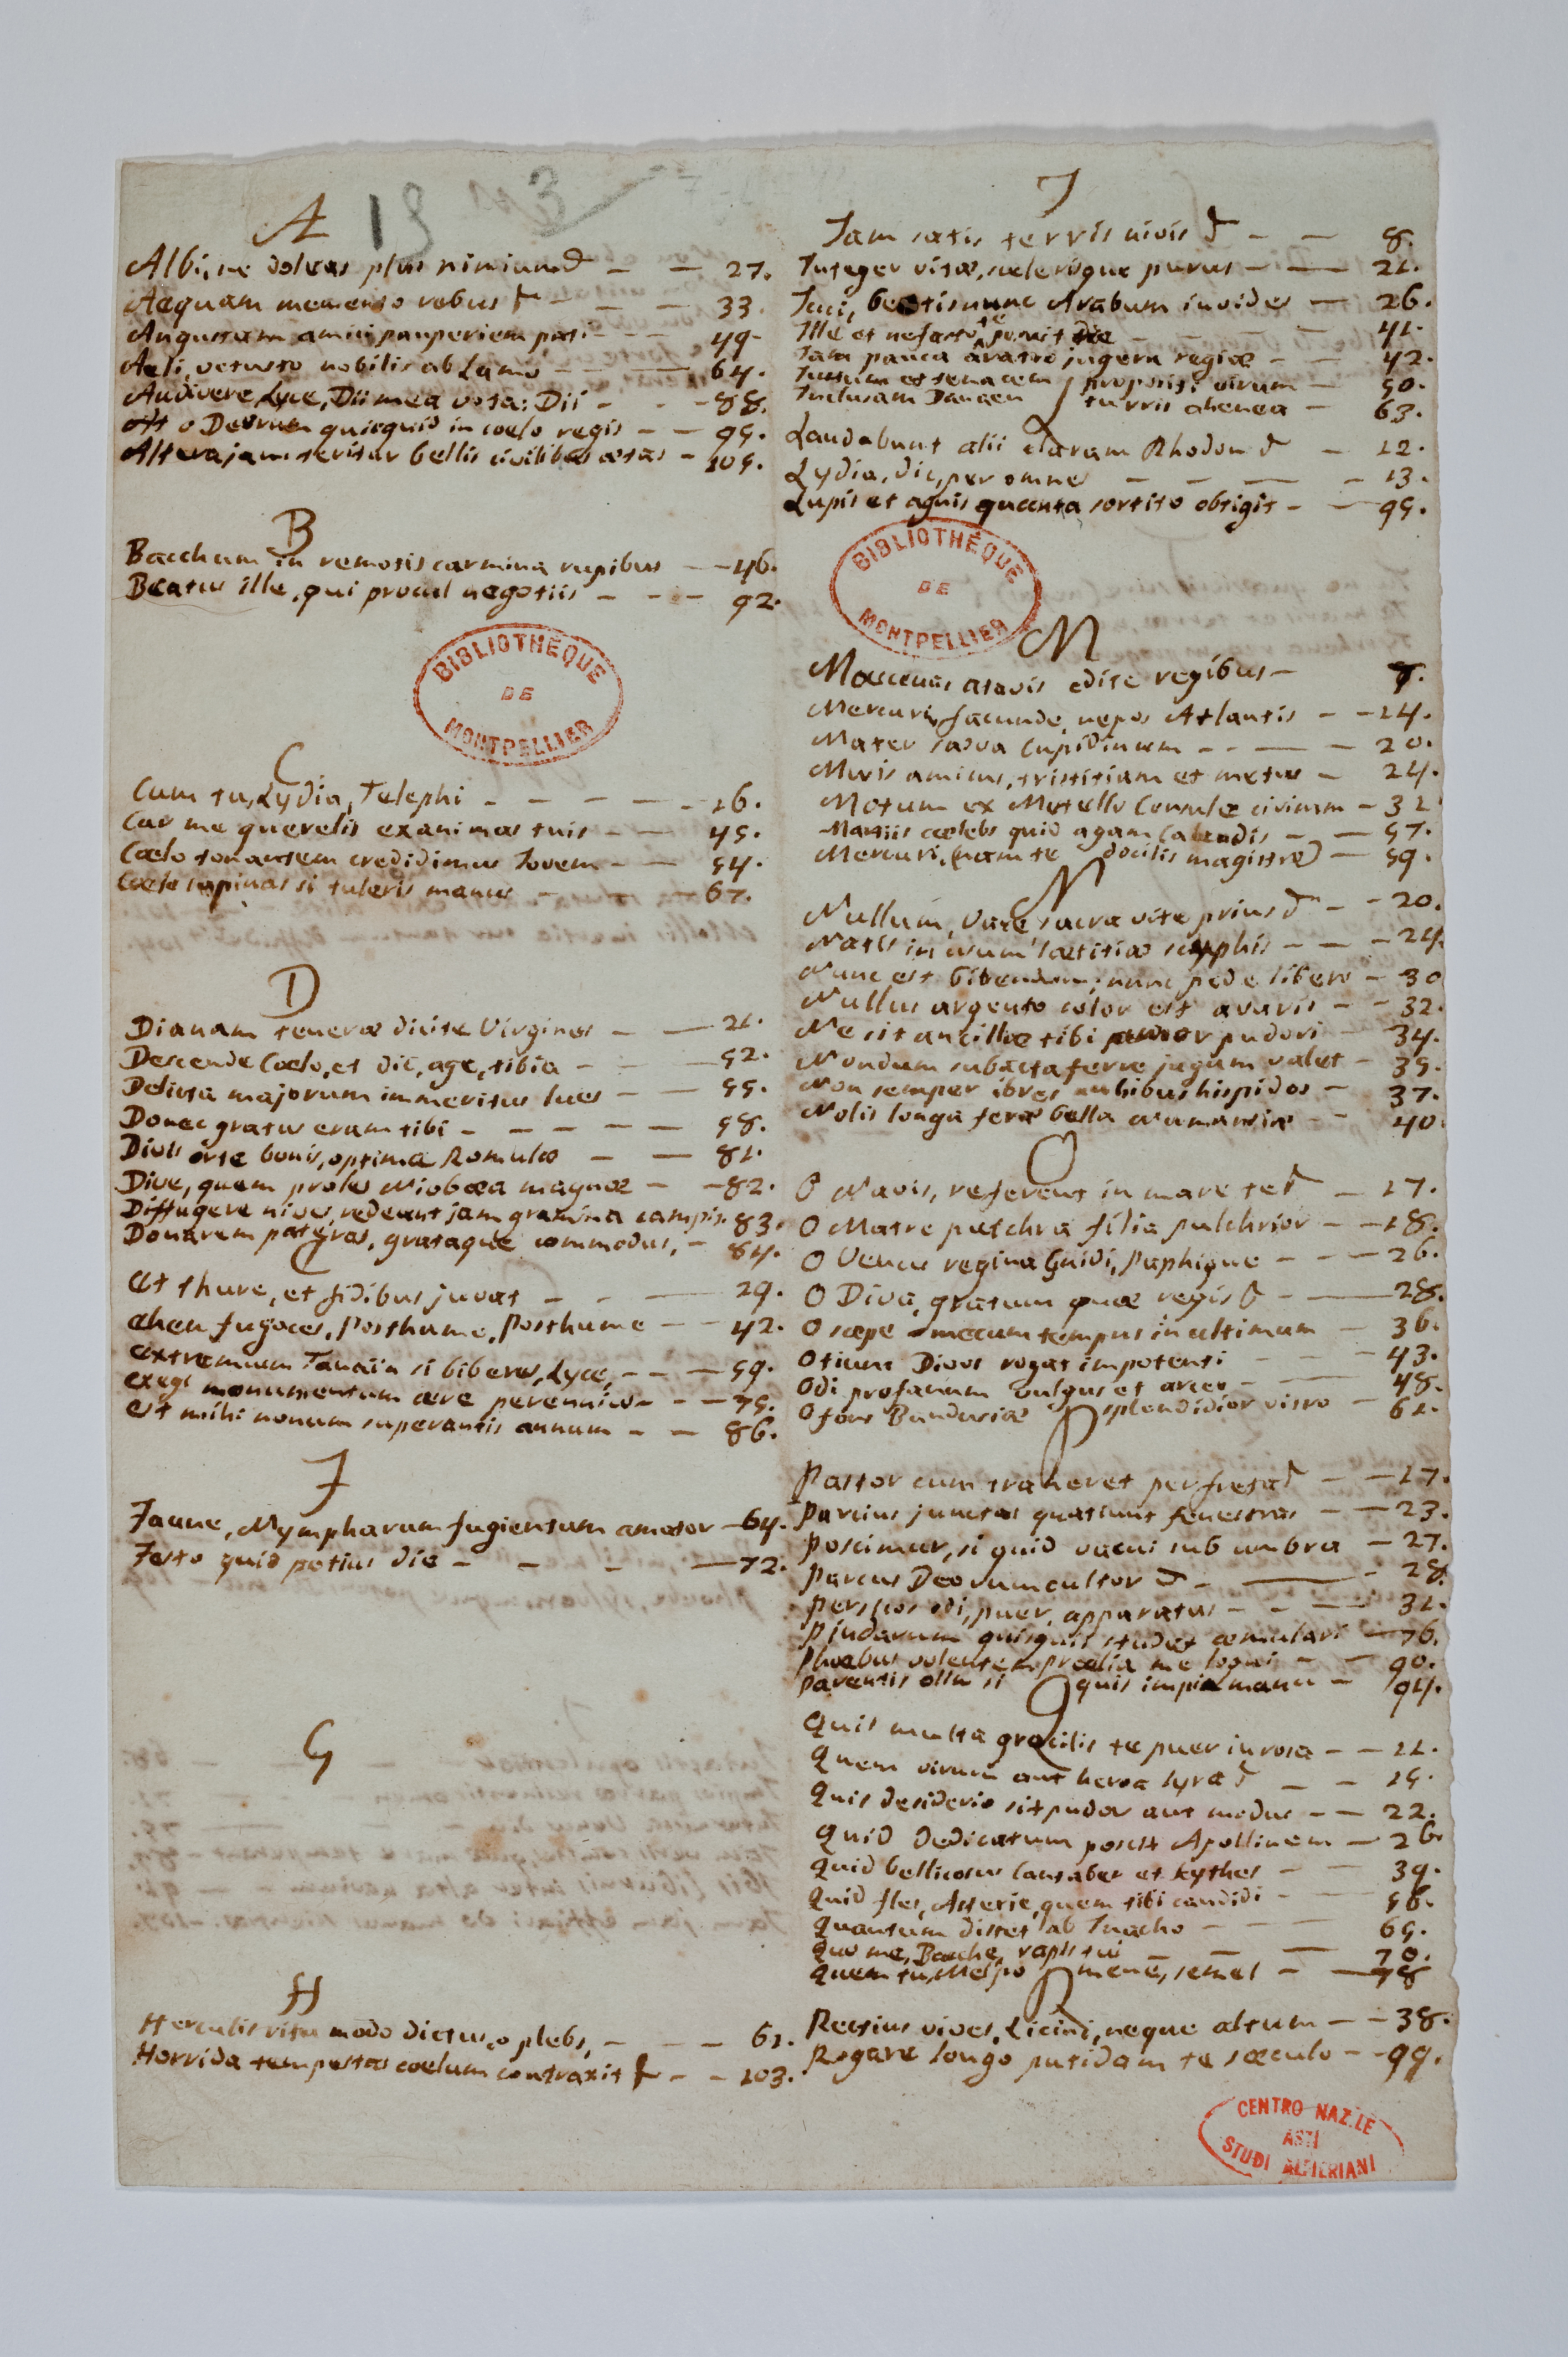 A
Albi, ne doleas plus nimium & - - 27.
Aequam memento rebus & - - - 33.
Angustam amici pauperiem pati - - - 49.
Aeli, vetusto nobilis ab Lamo - - - 64.
Audivere, Lyce, Dii mea vota; Dii - - - 88.
At o Deorum quicquid in coelo regis - - 95.
Altera jam teritur bellis civilibus aetas - 105.
B
Bacchum in remotis carmina rupibus - - 46.
Beatus ille, qui procul negotiis - - - 92.
BIBLIOTHÈQUE
DE
MONTPELLIER
C
Cum tu, Lydia, Telephi - - - - - 16.
Cur me querelis exanimas tuis - - - 45.
Coelo tonantem credidimus Jovem - - 54.
Coelo supinas si tuleris manus - - - 67.
D
Dianam tenerae dicite Virgines - - 21.
Descende Coelo, et dic, age, tibia - - - 52.
Delicta majorum immeritus lues - - 55.
Donec gratus eram tibi - - - - - 58.
Divis orte bonis, optimae Romulae - - 81.
Dive, quem proles Niobaea magnae - - 82.
Diffugere nives, redeunt jam gramina campis. 83.
Donarem pateras, grataque commodus, - 84.
E
Et thure, et fidibus juvat - - - 29.
Eheu fugaces, Posthume, Posthume - - 42.
Extremum Tanain si biberes, Lyce, - - - 59.
Exegi monumentum aere perennius - - - 75.
Est mihi nonum superantis annum - - 86.
F
Faune, Nympharum fugientum amator - 64.
Festo quid potius die - - - - 72.
G
H
Herculis ritu modo dictus, o plebs, - - - 61.
Horrida tempestas coelum contraxit & - - 103.
I
Jam satis terris nivis & - - 8.
Integer vitae, scelerisque purus - - - 21.
Icci, beatis nunc Arabum invides - 26.
Ille et nefasto te posuit die - - - 41.
Jam pauca aratro jugera regiae - - 42.
Justum et tenacem propositi virum - 50.
Inclusam Danaen turris ahenea - 63.
L
Laudabunt alii claram Rhodon & - 12.
Lydia, dic, per omnes - - - - 13.
Lupis et agnis quanta sortito obtigit - - 95.
BIBLIOTHÈQUE
DE
MONTPELLIER
M
Maecenas atavis edite regibus - 7.
Mercuri, facunde nepos Atlantis - - 14.
Mater saeva Cupidinum - - - - 20.
Musis amicus, tristitiam et metus - 24.
Motum ex Metello Consule civicum - 31
Martiis coelebs quid agam Calendis - - 57.
Mercuri, (nam te docilis magistro) - 59.
N
Nullum, Vare, sacra vite prius & - - 20.
Natis in usum laetitiae scyphis - - - 24.
Nunc est bibendum, nunc pede libero - 30
Nullus argento color est avaris - - 32.
Ne sit ancillae tibi amor pudori - 34.
Nondum subacta ferre jugum valet - 35.
Non semper ibres nubibus hispidos - 37.
Nolis longa ferae bella Numantiae - - 40.
O
O Navis, referent in mare te & - 17.
O Matre pulchra filia pulchrior - - 18.
O Venus regina Gnidi, Paphique - - - 26.
O Diva, gratum quae regis & - - 28.
O saepe mecum tempus in ultimum - 36.
Otium Divos rogat impotenti - - - 43.
Odi profanum vulgus et arceo - - - 48.
O fons Bandusiae splendidior vitro - 61.
P
Pastor cum traheret per freta & - - 17.
Parcius junctas quatiunt fenestras - - 23.
Poscimur, si quid vacui sub umbra - 27.
Parcus Deorum cultor & - - - 28.
Persicos odi, puer, apparatus - - - 31.
Pindarum quisquis studet aemulari - 76.
Phoebus volentem praelia me loqui - - 90.
Parentis olim si quis impia manu - 94.
Q
Quis multa gracilis te puer in rosa - - 11.
Quem virum aut heroa lyra & - - 15.
Quis desiderio sit pudor aut modus - - 22.
Quid dedicatum poscit Apollinem - 26.
Quid bellicosus Cantaber et Scythes - - 39.
Quid fles, Asterie, quem tibi candidi - - 56.
Quantum distet ab Inacho - - - 65.
Quo me, Bacche, rapis tui - - - 70.
Quem tu, Melpomene, semel - - 78
R
Rectius vives, Licini, neque altum - - 38.
Rogare longo putidam te saeculo - - 99.
CENTRO NAZ.LE
ASTI
STUDI ALFIERIANI